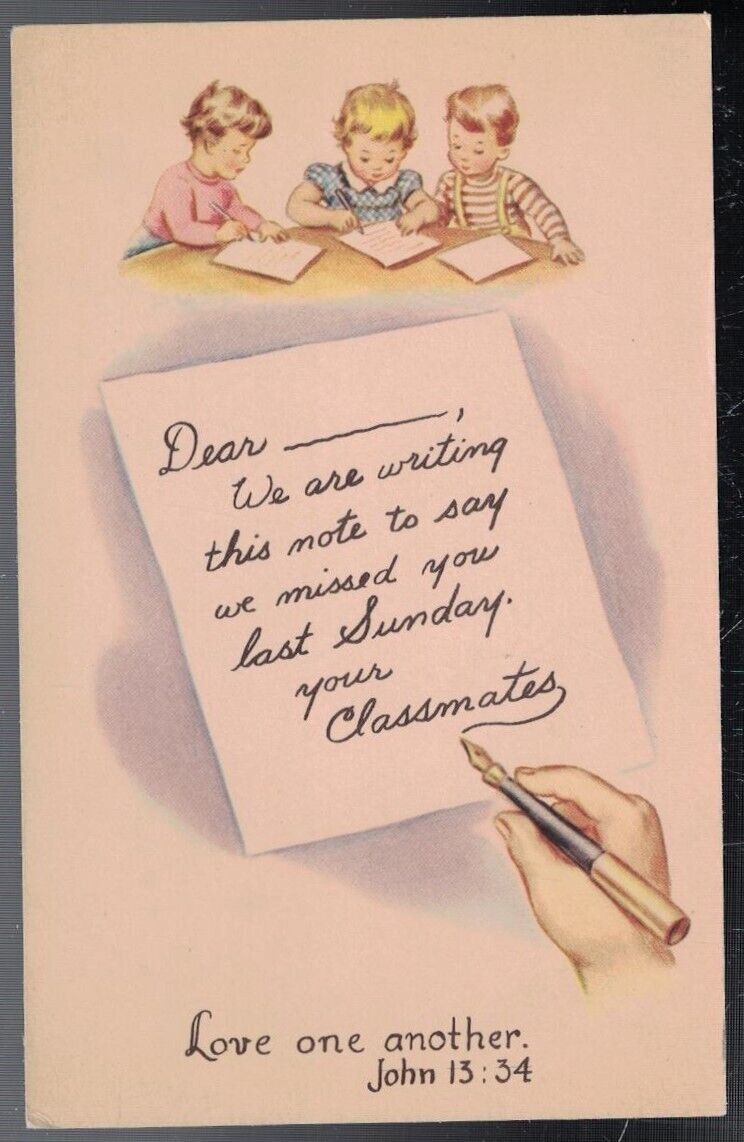 Dear ________,
We are writing
this note to say
we missed you
last Sunday.
your
Classmates
Love one another.
John 13:34